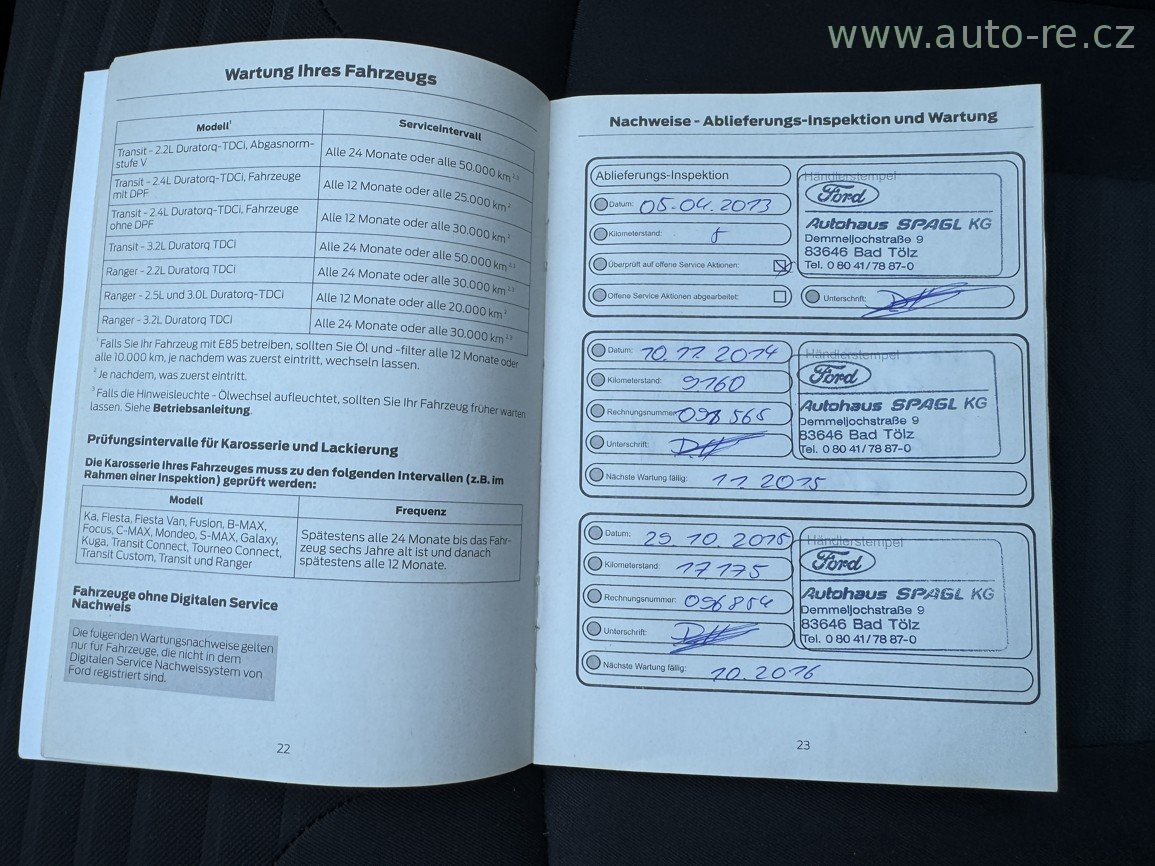 www.auto-re.cz
Wartung Ihres Fahrzeugs
Modell¹ Serviceintervall
Transit - 2.2L Duratorq-TDCi, Abgasnorm-
stufe V
Alle 24 Monate oder alle 50.000 km ²,³
Transit - 2.4L Duratorq-TDCi, Fahrzeuge
mit DPF
Alle 12 Monate oder alle 25.000 km ²
Transit - 2.4L Duratorq-TDCi, Fahrzeuge
ohne DPF
Alle 12 Monate oder alle 30.000 km ²
Transit - 3.2L Duratorq TDCi
Alle 24 Monate oder alle 50.000 km ²,³
Ranger - 2.2L Duratorq TDCi
Alle 24 Monate oder alle 30.000 km ²,³
Ranger - 2.5L und 3.0L Duratorq-TDCi
Alle 12 Monate oder alle 20.000 km ²
Ranger - 3.2L Duratorq TDCi
Alle 24 Monate oder alle 30.000 km ²,³
¹ Falls Sie Ihr Fahrzeug mit E85 betreiben, sollten Sie Öl und -filter alle 12 Monate oder
alle 10.000 km, je nachdem was zuerst eintritt, wechseln lassen.
² Je nachdem, was zuerst eintritt.
³ Falls die Hinweisleuchte - Ölwechsel aufleuchtet, sollten Sie Ihr Fahrzeug früher warten
lassen. Siehe Betriebsanleitung.
Prüfungsintervalle für Karosserie und Lackierung
Die Karosserie Ihres Fahrzeuges muss zu den folgenden Intervallen (z.B. im
Rahmen einer Inspektion) geprüft werden:
Modell Frequenz
Ka, Fiesta, Fiesta Van, Fusion, B-MAX,
Focus, C-MAX, Mondeo, S-MAX, Galaxy,
Kuga, Transit Connect, Tourneo Connect,
Transit Custom, Transit und Ranger
Spätestens alle 24 Monate bis das Fahr-
zeug sechs Jahre alt ist und danach
spätestens alle 12 Monate.
Fahrzeuge ohne Digitalen Service
Nachweis
Die folgenden Wartungsnachweise gelten
nur für Fahrzeuge, die nicht in dem
Digitalen Service Nachweissystem von
Ford registriert sind.
22
Nachweise - Ablieferungs-Inspektion und Wartung
Ablieferungs-Inspektion
Datum: 05.04.2013
Kilometerstand:
Überprüft auf offene Service Aktionen:
Offene Service Aktionen abgearbeitet:
Händlerstempel
Ford
Autohaus SPAGL KG
Demmeljochstraße 9
83646 Bad Tölz
Tel. 0 80 41/78 87-0
Unterschrift:
Datum: 10.11.2014
Kilometerstand: 9160
Rechnungsnummer: 098565
Unterschrift:
Nächste Wartung fällig: 11.2015
Händlerstempel
Ford
Autohaus SPAGL KG
Demmeljochstraße 9
83646 Bad Tölz
Tel. 0 80 41/78 87-0
Datum: 29.10.2015
Kilometerstand: 17175
Rechnungsnummer: 096854
Unterschrift:
Nächste Wartung fällig: 10.2016
Händlerstempel
Ford
Autohaus SPAGL KG
Demmeljochstraße 9
83646 Bad Tölz
Tel. 0 80 41/78 87-0
23